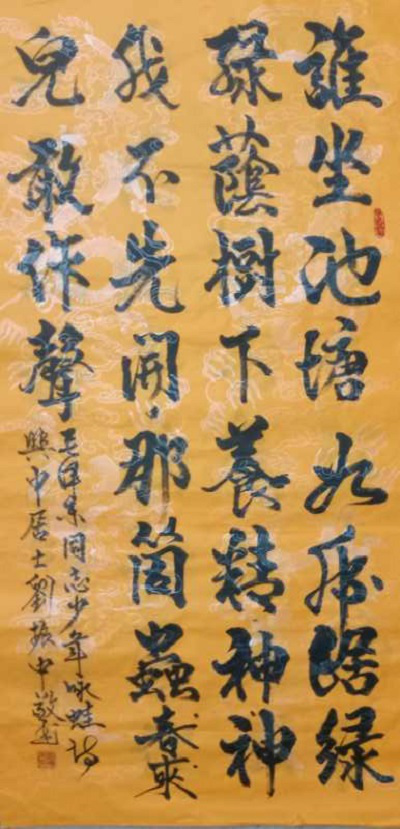 誰坐池塘如虎踞綠
綠蔭樹下養精神神
我不先開那箇蟲春來
兒敢作聲
毛澤東同志少年咏蛙詩
興中居士劉振中敬書